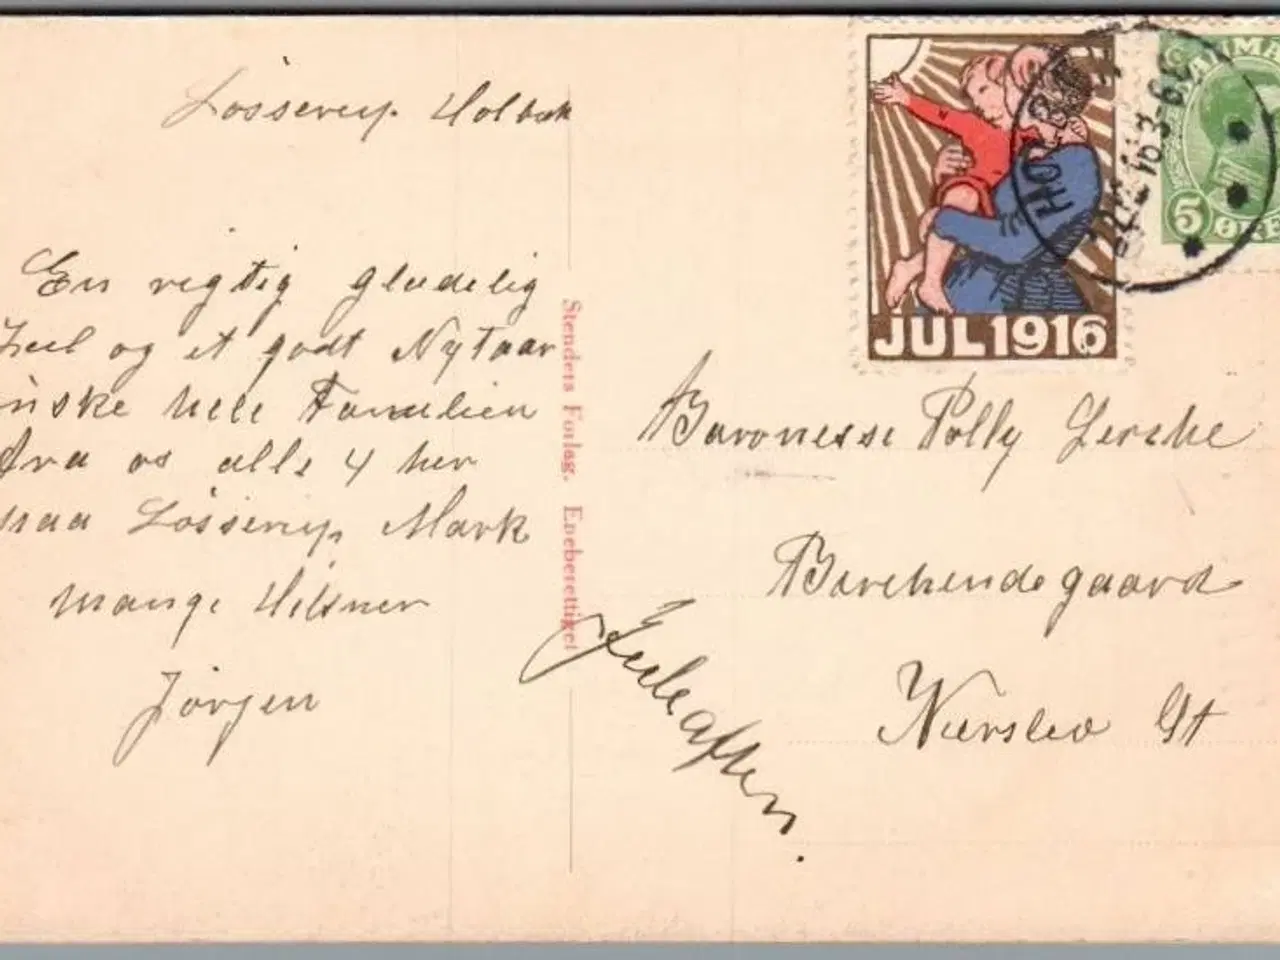 Lösserup Holbæk
En rigtig glædelig
Juul og et godt Nytaar
ønske hele Familien
fra os alle 4 her
paa Lösserup Mark
mange Hilsner
Jörgen
Stenders Forlag. Eneberettiget
JUL 1916
5 ØRE
Baronesse Polly Lerche
Birchendegaard
Værslev St
Juleaften.